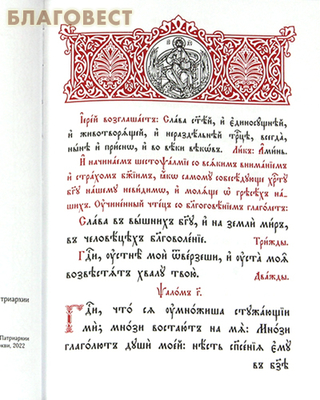 БЛАГОВЕСТ
І҆ере́й возглаша́етъ: Сла́ва ст҃ѣ́й, и҆ є҆диносꙋ́щнѣй,
и҆ животворѧ́щей, и҆ нераздѣ́льнѣй трⷪ҇цѣ, всегда̀,
ны́нѣ и҆ при́снѡ, и҆ во вѣ́ки вѣкѡ́въ. Ли́къ: А҆ми́нь.
И҆ начина́емъ шестоѱа́лмїе со всѧ́кимъ внима́нїемъ
и҆ стра́хомъ бж҃їимъ, ꙗ҆́кѡ самомꙋ̀ собесѣ́дꙋюще хрⷭ҇тꙋ̀
бг҃ꙋ на́шемꙋ неви́димѡ, и҆ молѧ́ще ѡ҆ грѣсѣ́хъ на́-
шихъ. Оу҆чине́нный ста́рецъ со бл҃гоговѣ́нїемъ глаго́летъ:
Сла́ва въ вы́шнихъ бг҃ꙋ, и҆ на землѝ ми́ръ,
въ человѣ́цѣхъ бл҃говоле́нїе. Три́жды.
Гдⷭ҇и, ᲂу҆стнѣ̀ моѝ ѿве́рзеши, и҆ ᲂу҆ста̀ моѧ̑
возвѣстѧ́тъ хвалꙋ̀ твою̀. Два́жды.
Ѱало́мъ г҃.
Гдⷭ҇и, что́ сѧ ᲂу҆мно́жиша стꙋжа́ющїи
мѝ; мно́зи востаю́тъ на мѧ̀: Мно́зи
глаго́лютъ дꙋшѝ мое́й: нѣ́сть спⷭ҇е́нїѧ є҆мꙋ̀
въ бз҃ѣ
триархии
Патриархии
2022